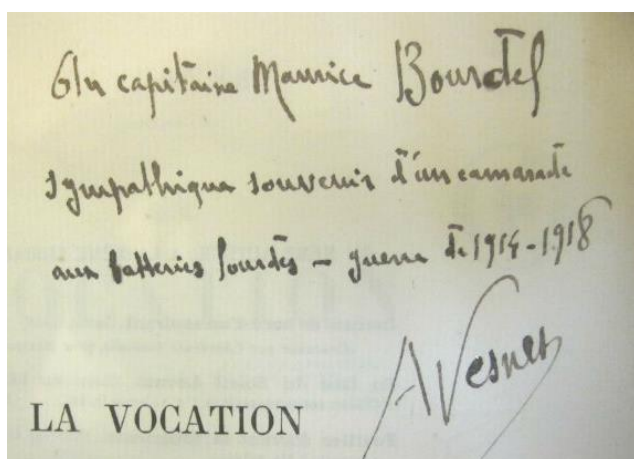 Au capitaine Maurice Bourdel
sympathique souvenir d'un camarade
aux batteries lourdes — guerre de 1914-1918
LA VOCATION